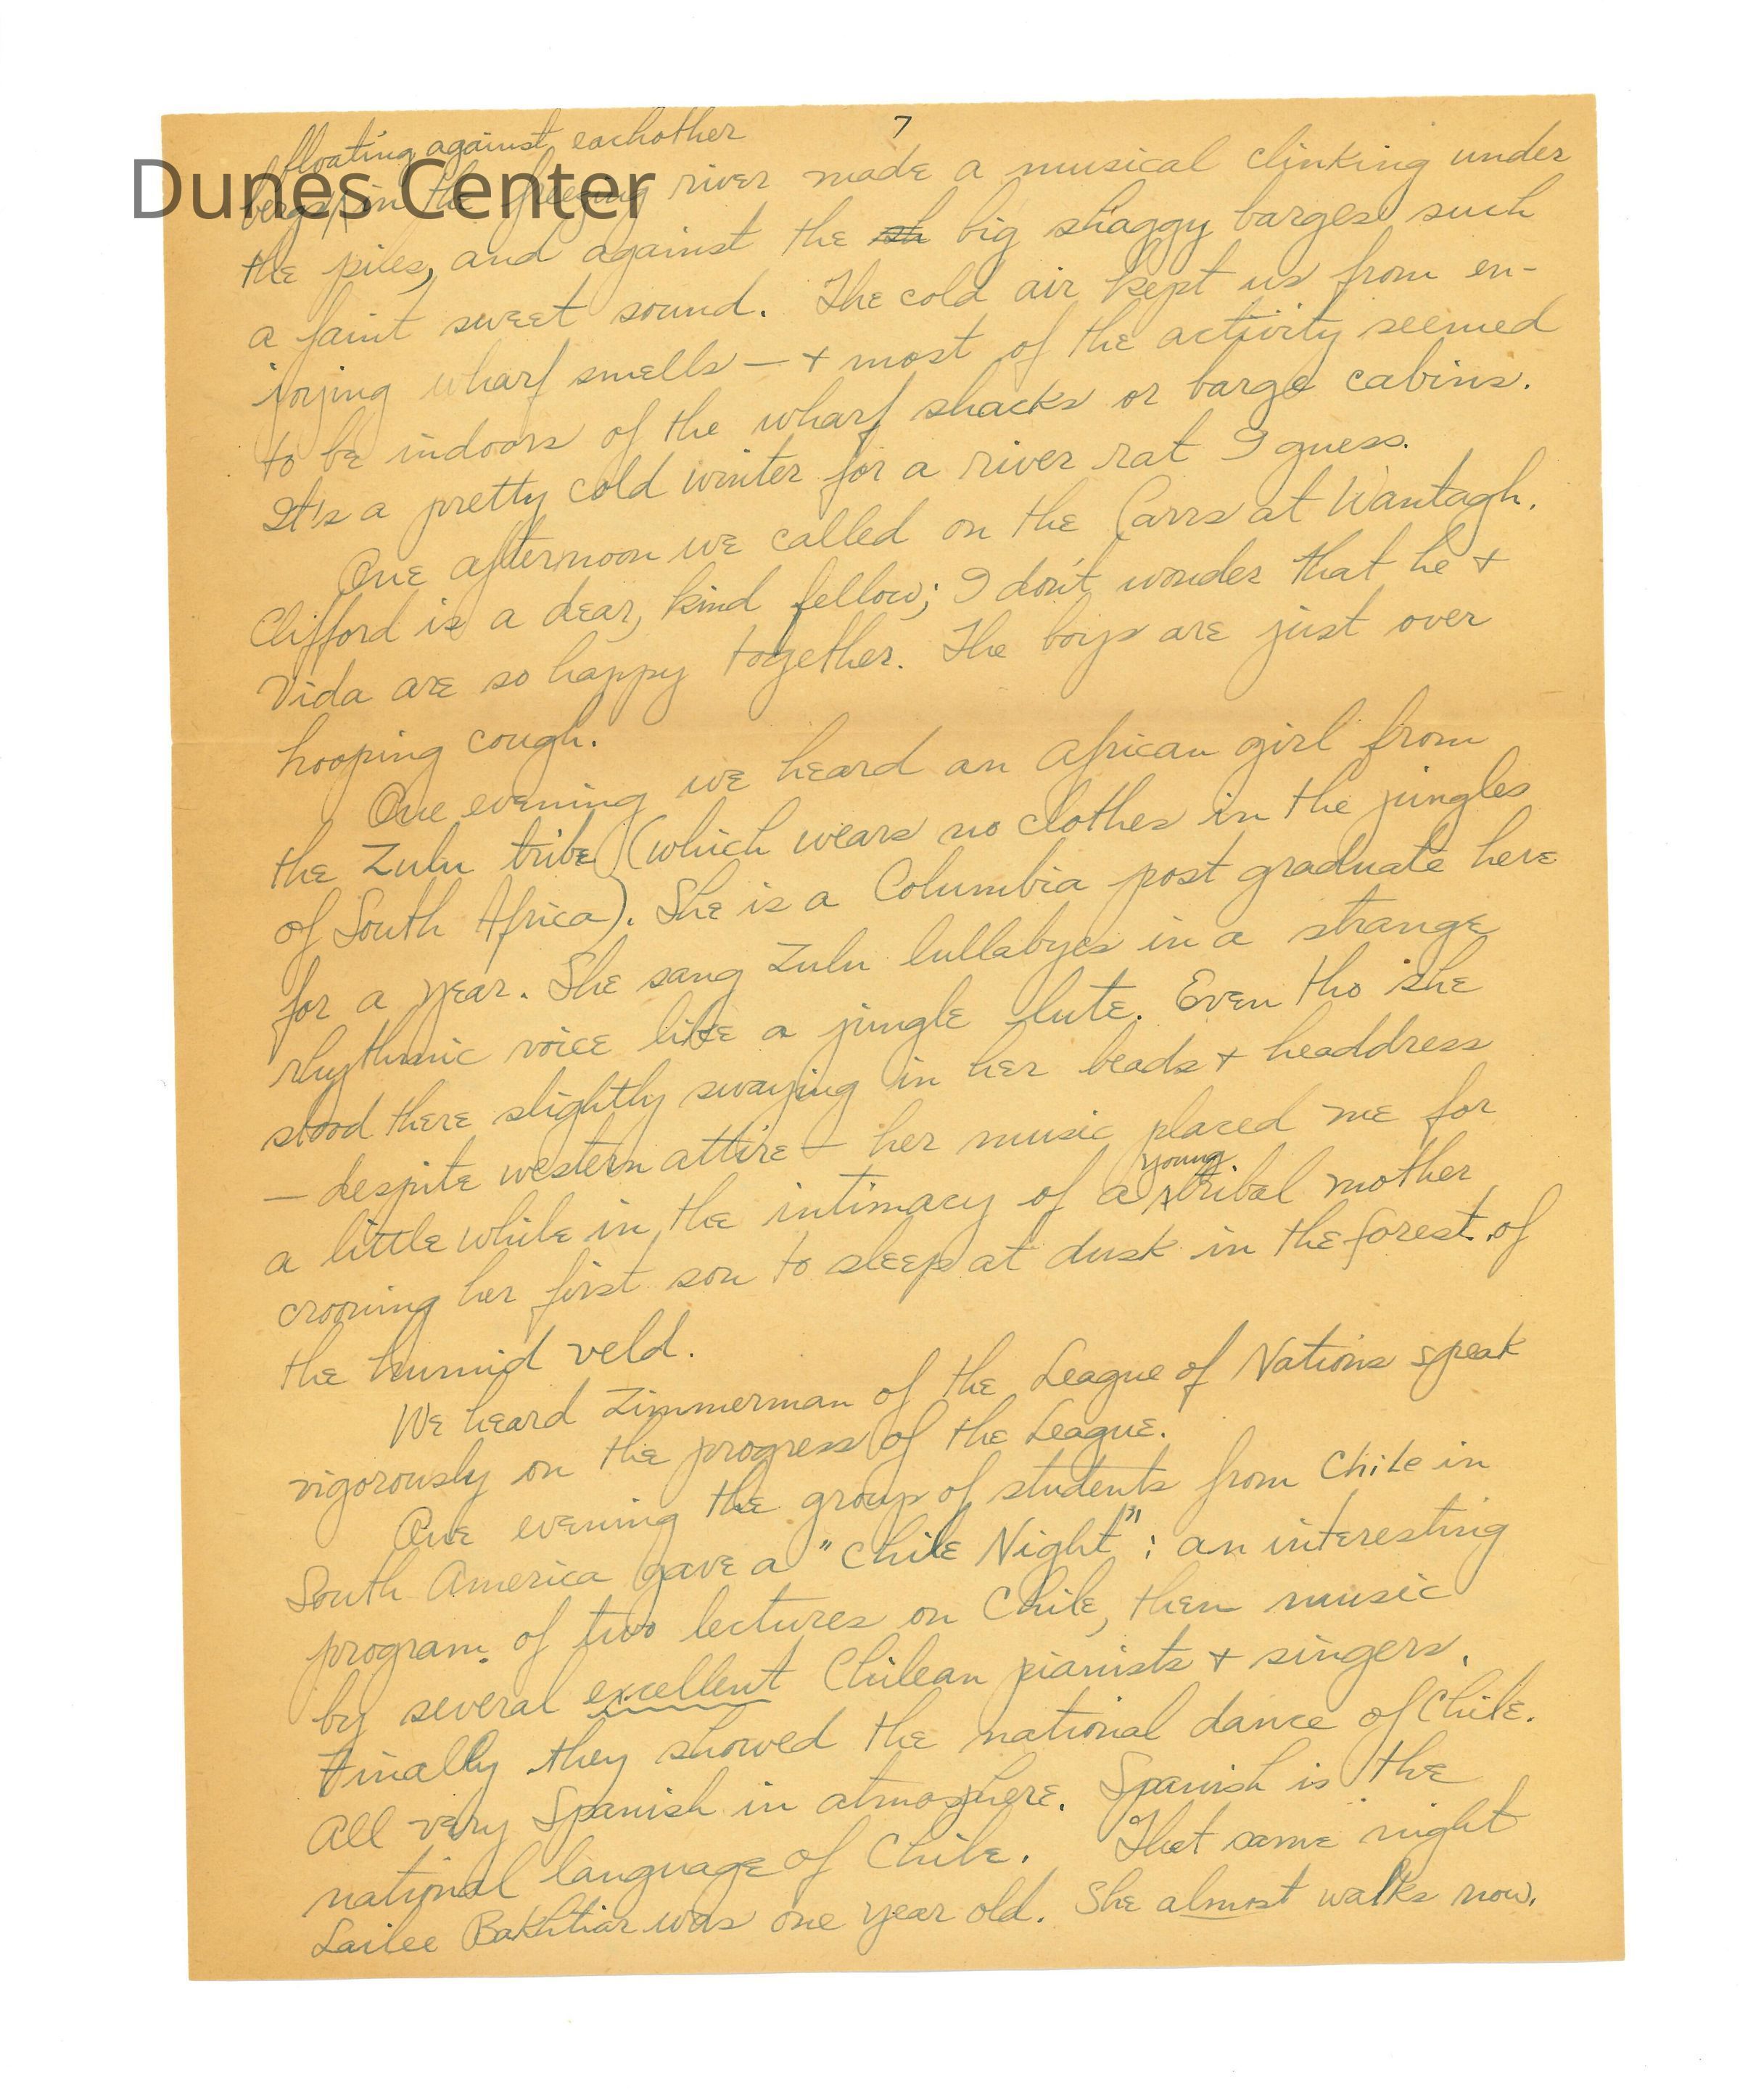 7
floating against eachother
Dunes Center
bergs in the freezing river made a musical clinking under
the piles, and against the sh big shaggy barges such
a faint sweet sound. The cold air kept us from en-
joying wharf smells — + most of the activity seemed
to be indoors of the wharf shacks or barge cabins.
It's a pretty cold winter for a river rat I guess.
One afternoon we called on the Carrs at Wantagh.
Clifford is a dear, kind fellow; I don't wonder that he +
Vida are so happy together. The boys are just over
hooping cough.
One evening we heard an African girl from
the Zulu tribe (which wears no clothes in the jungles
of South Africa). She is a Columbia post graduate here
for a year. She sang Zulu lullabyes in a strange
rhythmic voice like a jungle lute. Even tho she
stood there slightly swaying in her beads + headdress
— despite western attire — her music placed me for
young
a little while in the intimacy of a tribal mother
crooning her first son to sleep at dusk in the forest of
the humid veld.
We heard Zimmerman of the League of Nations speak
vigorously on the progress of the League.
One evening the group of students from Chile in
South America gave a "Chile Night": an interesting
program of two lectures on Chile, then music
by several excellent Chilean pianists + singers.
Finally they showed the national dance of Chile.
All very Spanish in atmosphere. Spanish is the
national language of Chile. That same night
Lailee Bakhtiar was one year old. She almost walks now.